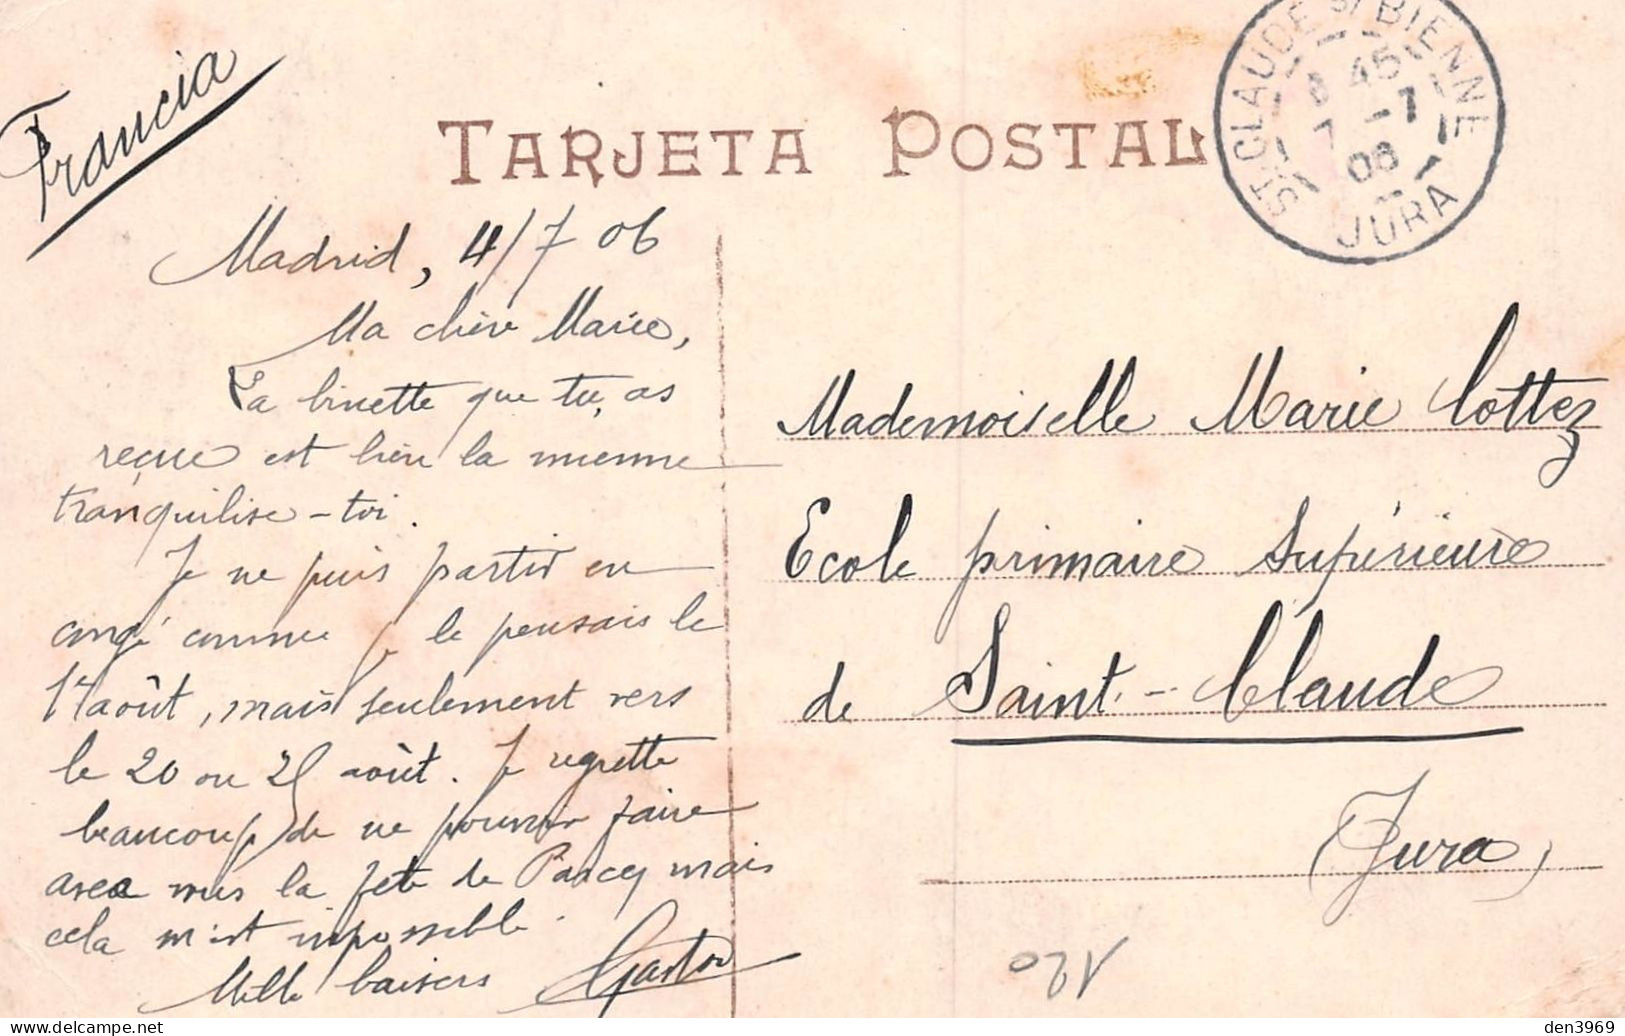 Francia
TARJETA POSTAL
ST-CLAUDE S/ BIENNE
8 45
7 -7
06
JURA
Madrid, 4/7 06
Ma chère Marie,
La binette que tu as
reçue est bien la mienne
tranquilise-toi.
Je ne puis partir en
congé comme je le pensais le
1er août, mais seulement vers
le 20 ou 25 août. Je regrette
beaucoup de ne pouvoir faire
avec vous la fête de Parcey mais
cela m'est impossible.
Mille baisers Gaston
Mademoiselle Marie Cottez
Ecole primaire Supérieure
de Saint-Claude
(Jura)
120
den3969